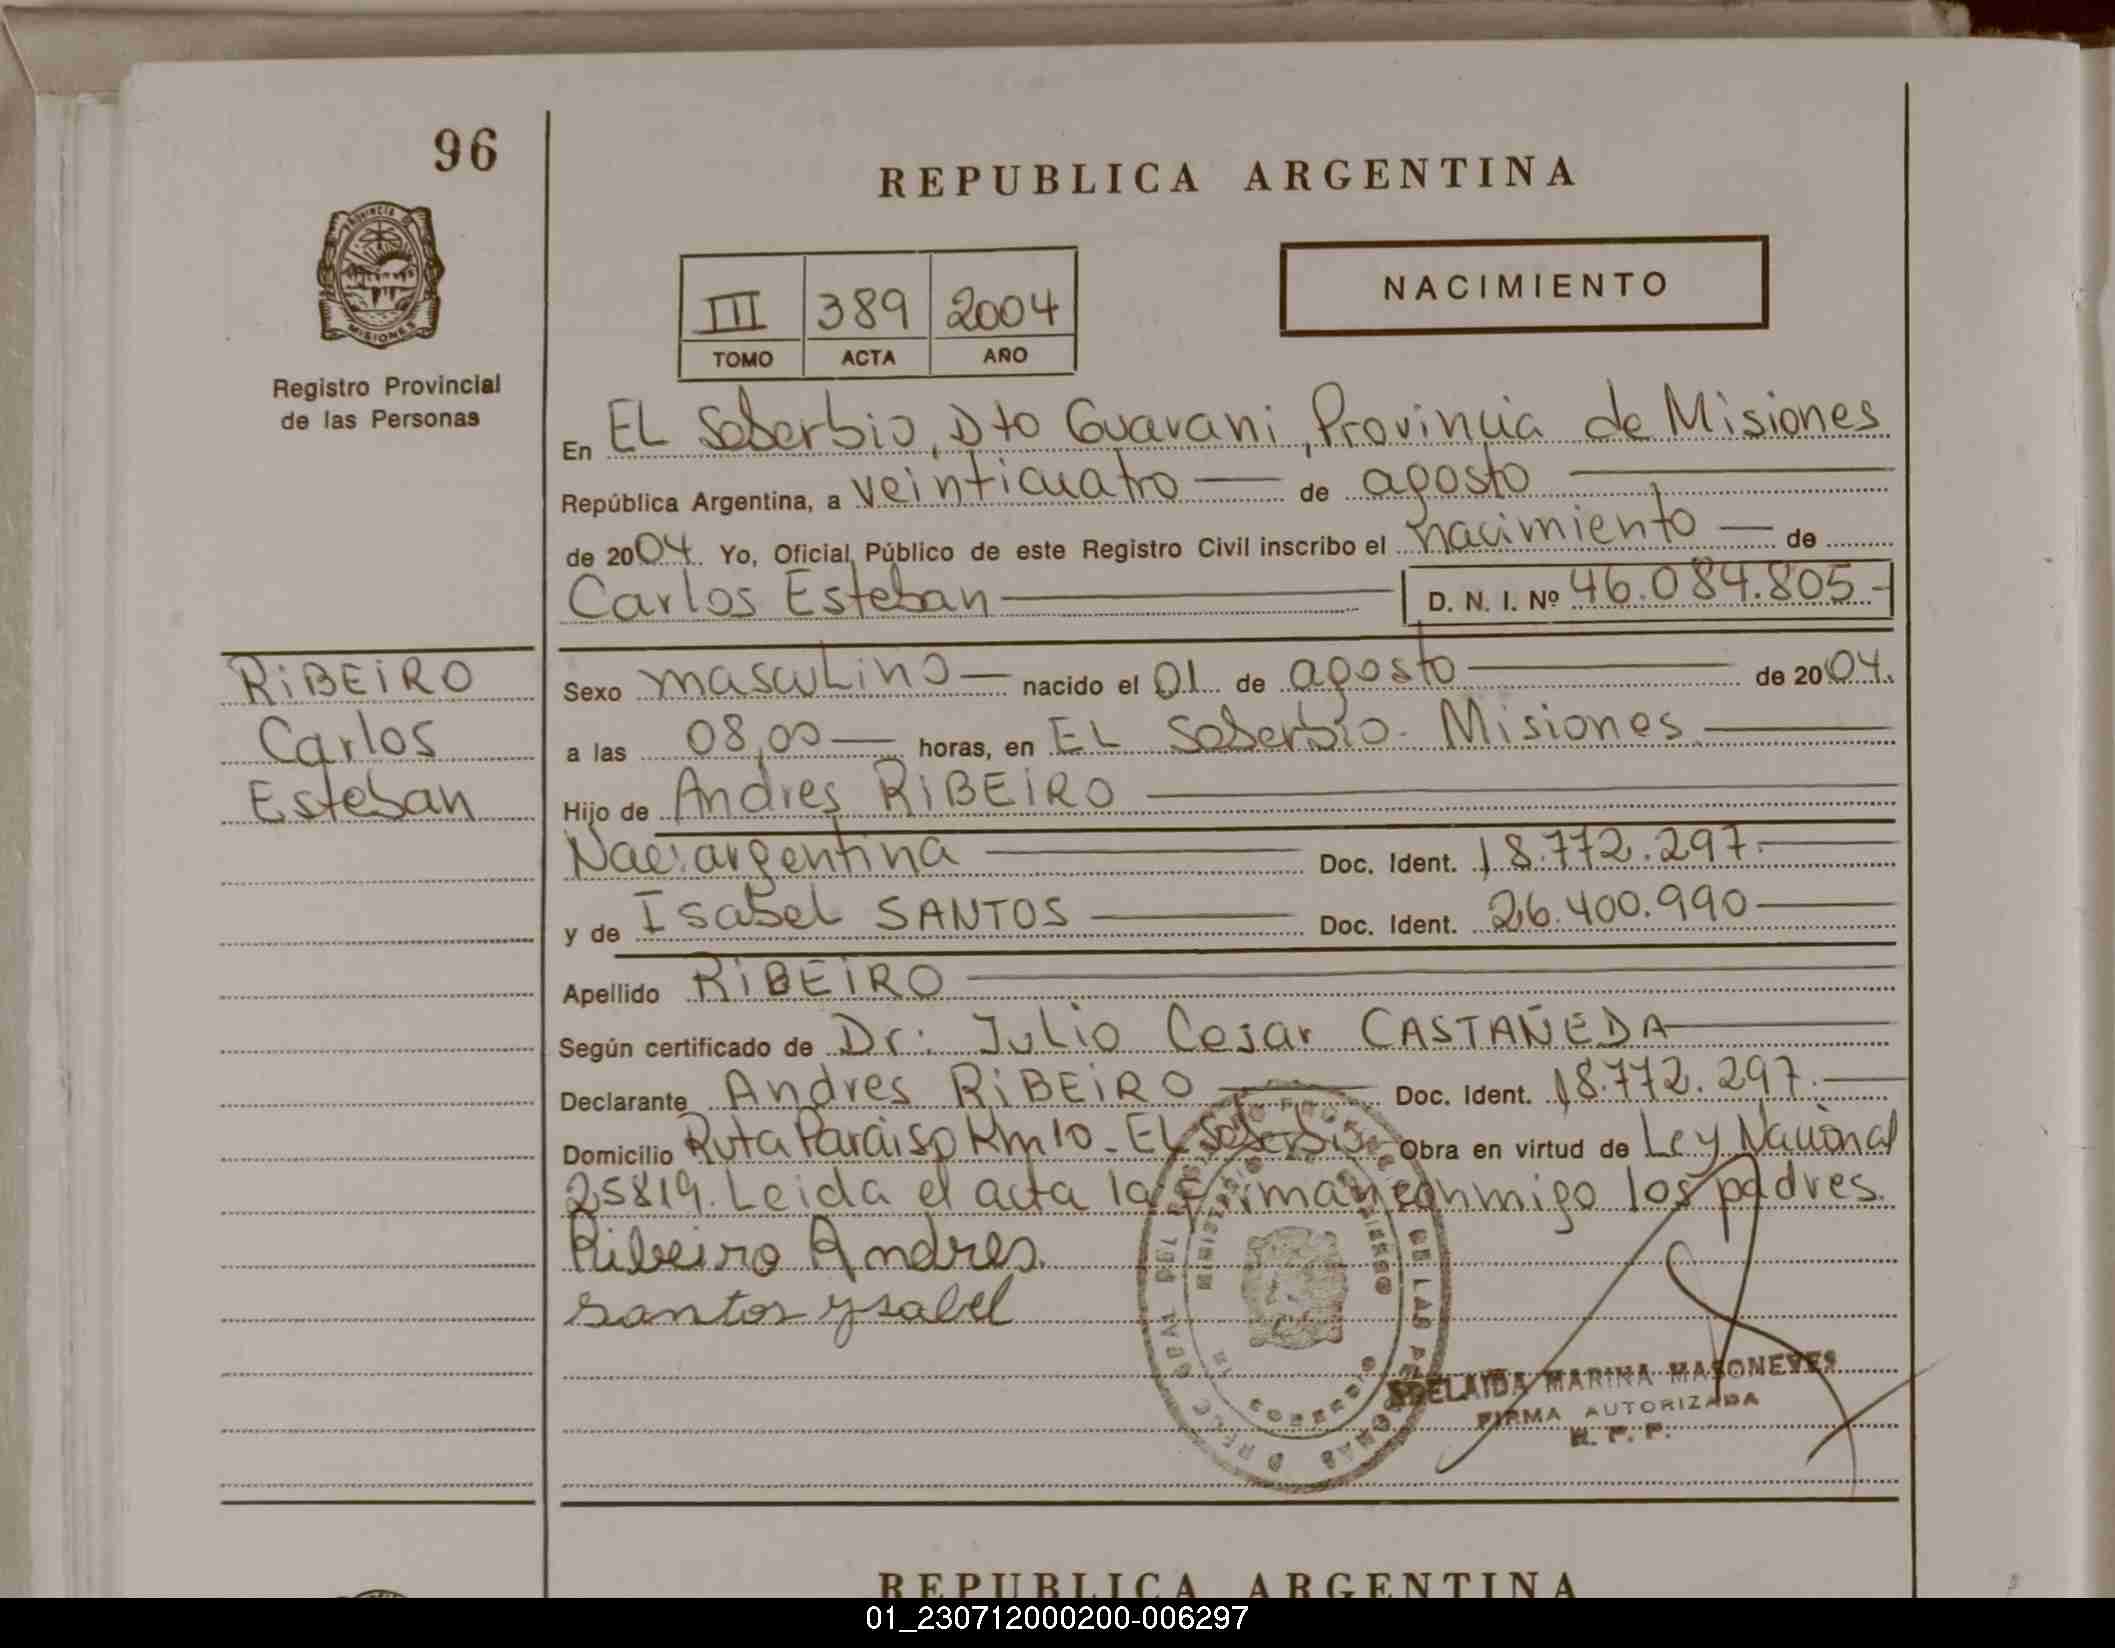 96
REPUBLICA ARGENTINA
PROVINCIA DE
MISIONES
Registro Provincial
de las Personas
NACIMIENTO
III 389 2004
TOMO ACTA AÑO
En EL Soberbio, Dto Guarani, Provincia de Misiones
República Argentina, a veinticuatro — de agosto —
de 2004. Yo, Oficial Público de este Registro Civil inscribo el nacimiento — de
Carlos Esteban — D. N. I. Nº 46.084.805-
RiBEiRO
Carlos
Esteban
Sexo masculino — nacido el 01 de agosto — de 2004.
a las 08,00 — horas, en EL Soberbio - Misiones —
Hijo de Andres RiBEiRO —
Nac: argentina — Doc. Ident. 18.772.297. —
y de Isabel SANTOS — Doc. Ident. 26.400.990 —
Apellido RiBEiRO —
Según certificado de Dr: Julio Cesar CASTAÑEDA —
Declarante Andres RiBEiRO — Doc. Ident. 18.772.297. —
Domicilio Ruta Paraiso Km 10 - EL Soberbio - Obra en virtud de Ley Nacional
25819. Leida el acta la firman conmigo los padres.
Ribeiro Andres.
santos ysabel
ADELAIDA MARINA MASONEVES
FIRMA AUTORIZADA
R. P. P.
REPUBLICA ARGENTINA
01_230712000200-006297